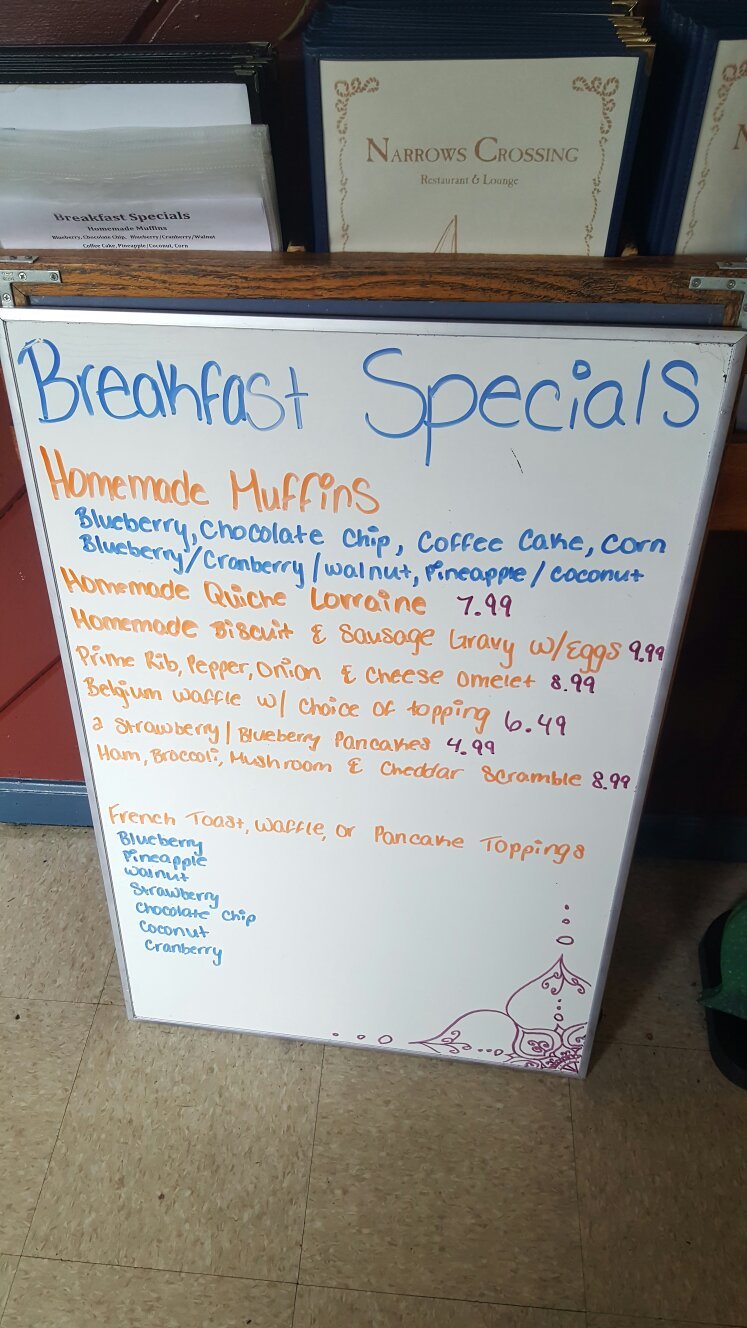 NARROWS CROSSING
Restaurant & Lounge
Breakfast Specials
Homemade Muffins
Blueberry, Chocolate Chip, Blueberry/Cranberry/Walnut
Coffee Cake, Pineapple/Coconut, Corn
Breakfast Specials
Homemade Muffins
Blueberry, Chocolate Chip, Coffee Cake, Corn
Blueberry/Cranberry/Walnut, Pineapple/Coconut
Homemade Quiche Lorraine 7.99
Homemade Biscuit & Sausage Gravy w/Eggs 9.99
Prime Rib, Pepper, Onion & Cheese Omelet 8.99
Belgium Waffle w/ choice of topping 6.49
2 Strawberry/Blueberry Pancakes 4.99
Ham, Broccoli, Mushroom & Cheddar Scramble 8.99
French Toast, Waffle, or Pancake Toppings
Blueberry
Pineapple
Walnut
Strawberry
Chocolate Chip
Coconut
Cranberry